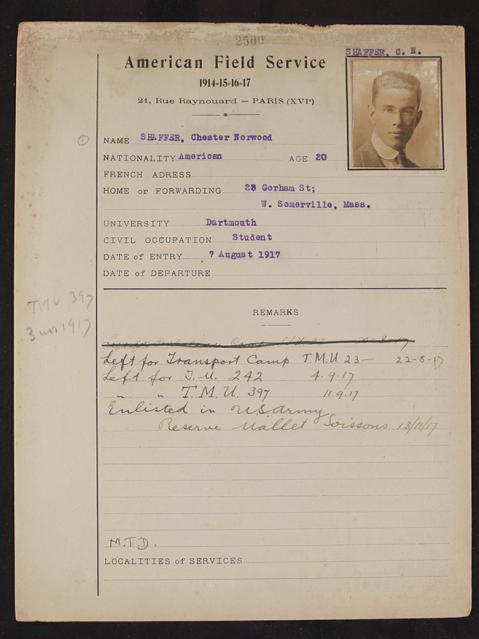 2500
SHAFFER, C. N.
American Field Service
1914-15-16-17
21, Rue Raynouard — PARIS (XVIᵉ)
NAME SHAFFER, Chester Norwood
NATIONALITY American AGE 20
FRENCH ADRESS
HOME or FORWARDING 28 Gorham St;
W. Somerville, Mass.
UNIVERSITY Dartmouth
CIVIL OCCUPATION Student
DATE of ENTRY 7 August 1917
DATE of DEPARTURE
TMU 397
1917
REMARKS
Left for Transport Camp T.M.U 23— 22-8-17
Left for T.U. 242 4.9.17
" " T.M.U. 397 11.9.17
Enlisted in US army
Reserve Mallet Soissons 13/11/17
M.T.D.
LOCALITIES of SERVICES